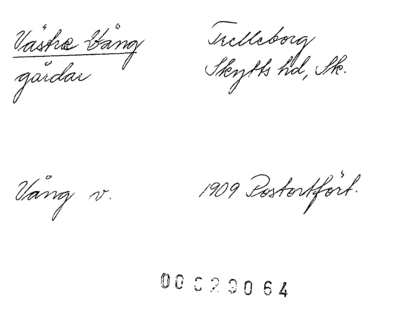 Västra Vång Trelleborg
gårdar Skytts hd, Sk.
Vång v. 1909 Postortfört.
00029064